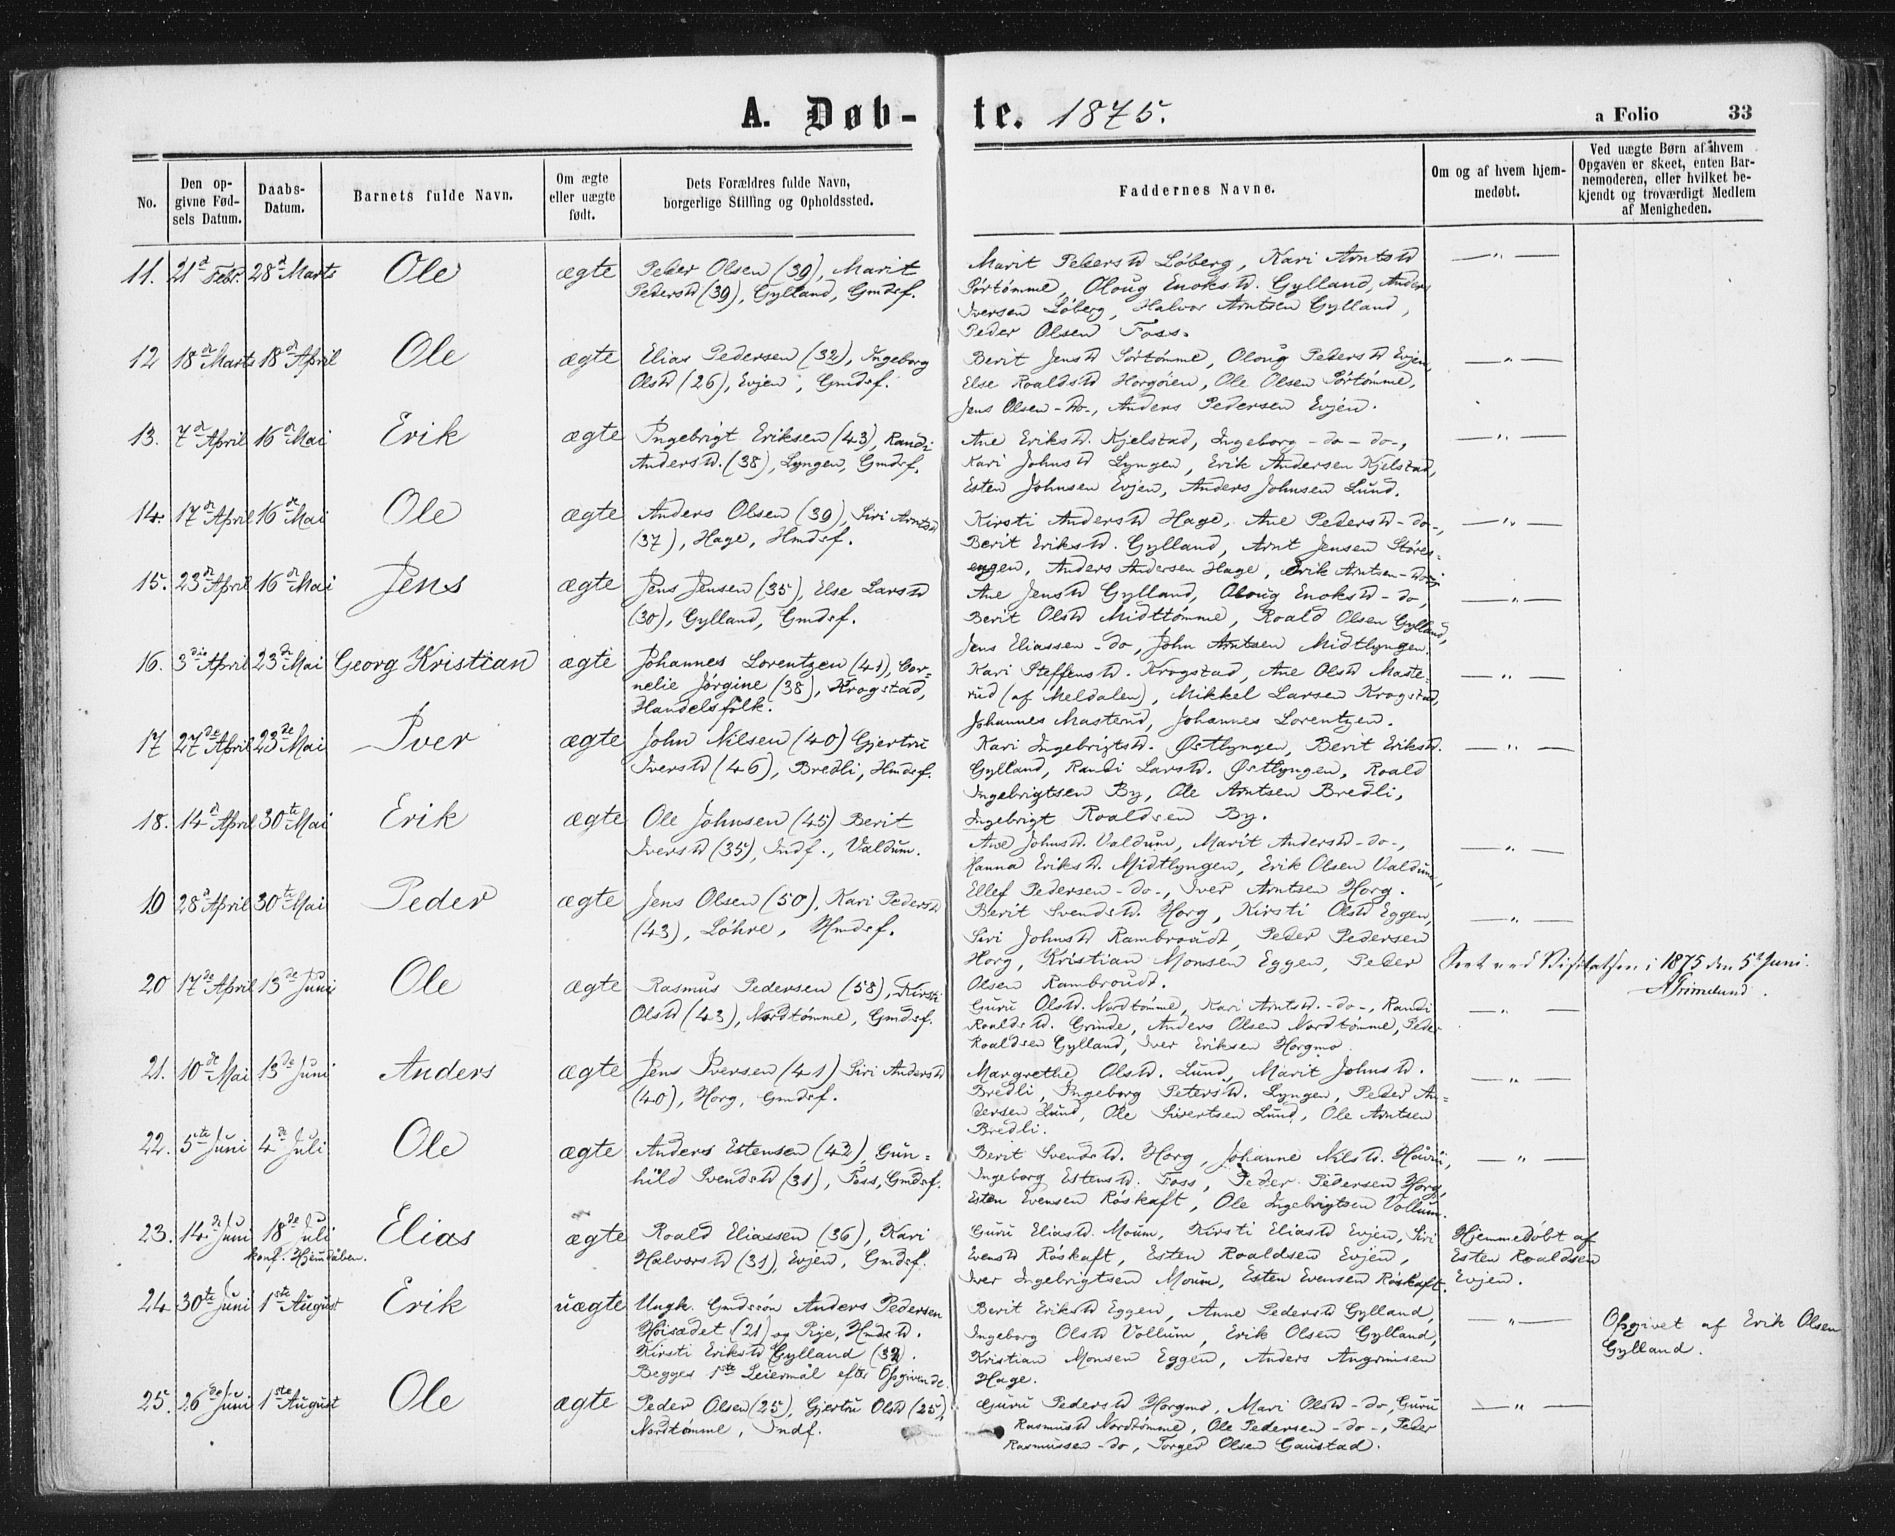 A. Døb-te. 1875. a Folio 33
No.
Den opgivne Fødsels Datum.
Daabs-Datum.
Barnets fulde Navn.
Om ægte eller uægte født.
Dets Forældres fulde Navn, borgerlige Stilling og Opholdssted.
Faddernes Navne.
Om og af hvem hjemmedøbt.
Ved uægte Børn af hvem Opgaven er skeet, enten Barnemoderen, eller hvilket bekjendt og troværdigt Medlem af Menigheden.
11. 21d Febr. 28d Marts Ole ægte
Peder Olsen (39), Marit
Pedersd (39), Gylland, Gmdsf.
Marit Pedersd Løberg, Kari Arntsd
Sørtømme, Oloug Enoksd. Gylland, Anders
Iversen Løberg, Halvor Arntsen Gylland,
Peder Olsen Foss. — „ —
12 18de Marts 18de April Ole ægte
Elias Pedersen (32), Ingeborg
Olsd (26), Evjen, Gmdsf.
Berit Jensd Sørtømme, Oloug Pedersd Evjen,
Else Roaldsd Horgøien, Ole Olsen Sørtømme,
Jens Olsen -do-, Anders Pedersen Evjen. — „ —
13. 7de April 16de Mai Erik ægte
Ingebrigt Eriksen (43), Randi
Andersd. (38), Lyngen, Gmdsf.
Ane Eriksd. Kjelstad, Ingeborg -do- do-,
Kari Johnsd Lyngen, Erik Andersen Kjelstad,
Esten Johnsen Evjen, Anders Johnsen Lund. — „ —
14. 17de April 16de Mai Ole ægte
Anders Olsen (39), Siri Arntsd
(37), Hage, Hmdsf.
Kirsti Andersd Hage, Ane Pedersd -do-,
Berit Eriksd. Gylland, Arnt Jensen Støres-
engen, Anders Andersen Hage, Erik Arntsen -do-. — „ —
15. 23de April 16de Mai Jens ægte
Jens Jensen (35), Else Larsd
(30), Gylland, Gmdsf.
Ane Jensd Gylland, Oloug Enoksd -do,
Berit Olsd Midttømme, Roald Olsen Gylland,
Jens Eliassen -do, John Arntsen Midtlyngen. — „ —
16. 3die April 23de Mai Georg Kristian ægte
Johannes Lorentzen (41), Cor-
nelie Jørgine (38), Krogstad,
Handelsfolk.
Kari Steffensd. Krogstad, Ane Olsd Maste-
rud (af Meldalen), Mikkel Larsen Krogstad,
Johannes Masterud, Johannes Lorentzen. — „ —
17 27de April 23de Mai Iver ægte
John Nilsen (40) Gjertru
Iversd (46), Bredli, Hmdsf.
Kari Ingebrigtsd. Østlyngen, Berit Eriksd.
Gylland, Randi Larsd. Østlyngen, Roald
Ingebrigtsen By, Ole Arntsen Bredli,
Ingebrigt Roaldsen By. — „ —
18. 14d April 30te Mai Erik ægte
Ole Johnsen (45) Berit
Iversd (35), Indf., Valdum.
Ane Johnsd. Valdum, Marit Andersd -do-,
Hanna Eriksd. Midtlyngen, Erik Olsen Valdum,
Ellef Pedersen -do-, Iver Arntsen Horg. — „ —
19 28d April 30te Mai Peder ægte
Jens Olsen (50), Kari Pedersd
(43), Løhre, Hmdsf.
Berit Svendsd. Horg, Kirsti Olsd Eggen,
Siri Johnsd Rambroudt, Peder Pedersen
Horg, Kristian Monsen Eggen, Peder
Olsen Rambroudt. — „ —
Seet ved Visitatsen i 1875 den 5te Juni.
A Grimelund.
20 17de April 13de Juni Ole ægte
Rasmus Pedersen (58), Kirsti
Olsd (43), Nordtømme, Gmdsf.
Guru Olsd. Nordtømme, Kari Arntsd. -do-, Randi
Roaldsd. Grinde, Anders Olsen Nordtømme, Peder
Roaldsen Gylland, Iver Eriksen Horgmo — „ —
21. 10de Mai 13de Juni Anders ægte
Jens Iversen (41) Siri Andersd
(40), Horg, Gmdsf.
Margrethe Olsd. Lund, Marit Johnsd.
Bredli, Ingeborg Petersd. Lyngen, Peder An-
dersen Lund, Ole Sivertsen Lund, Ole Arntsen
Bredli. — „ —
22. 5te Juni 4de Juli Ole ægte
Anders Estensen (42), Gun-
hild Svendsd (31), Foss, Gmdsf.
Berit Svendsd. Horg, Johanne Nilsd.
Ingeborg Estensd. Foss, Peder Pedersen Horg,
Esten Evensen Røskaft, Ole Ingebrigtsen Vollum. — „ —
23. 14de Juni 18de Juli Elias ægte
konf. Hjemdåben.
Roald Eliassen (36), Kari
Halvorsd (31), Evjen, Gmdsf.
Guru Eliasd. Moum, Kirsti Eliasd Evjen, Siri
Evensd Røskaft, Esten Roaldsen Evjen,
Iver Ingebrigtsen Moum, Esten Evensen Røskaft.
Hjemmedøbt af
Esten Roaldsen
Evjen.
24. 30te Juni 1ste August Erik uægte
Ungk. Gmdssøn Anders Pedersen
Høisædet (21) og Pige, Hmdsd.
Kirsti Eriksd Gylland (32).
Begges 1ste Leiermål efter Opgivende.
Berit Eriksd Eggen, Anne Pedersd Gylland,
Ingeborg Olsd Vollum, Erik Olsen Gylland,
Kristian Monsen Eggen, Anders Angrimsen
Hage. — „ —
Opgivet af Erik Olsen
Gylland.
25. 26de Juni 1ste August Ole ægte
Peder Olsen (25), Gjertru Olsd (25),
Nordtømme, Indf.
Guru Pedersd Horgmo, Mari Olsd -do, Guru
Rasmusd Nordtømme, Ole Pedersen -do-, Peder
Rasmussen -do, Torger Olsen Gaustad. — „ —